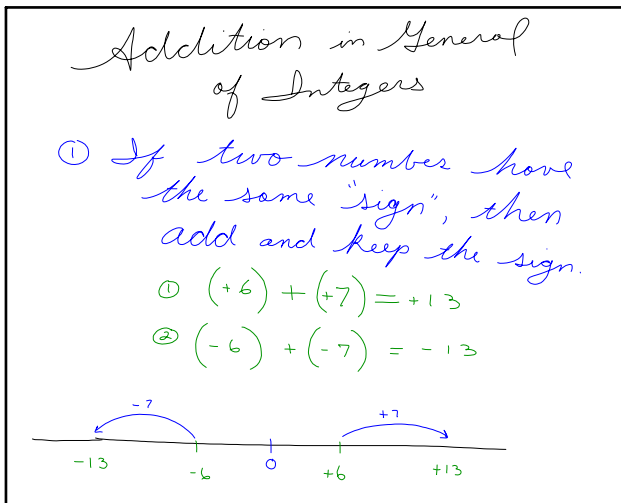 Addition in General
of Integers
① If two number have
the same "sign", then
add and keep the sign.
① (+6) + (+7) = +13
② (-6) + (-7) = -13
-7 +7
-13 -6 0 +6 +13